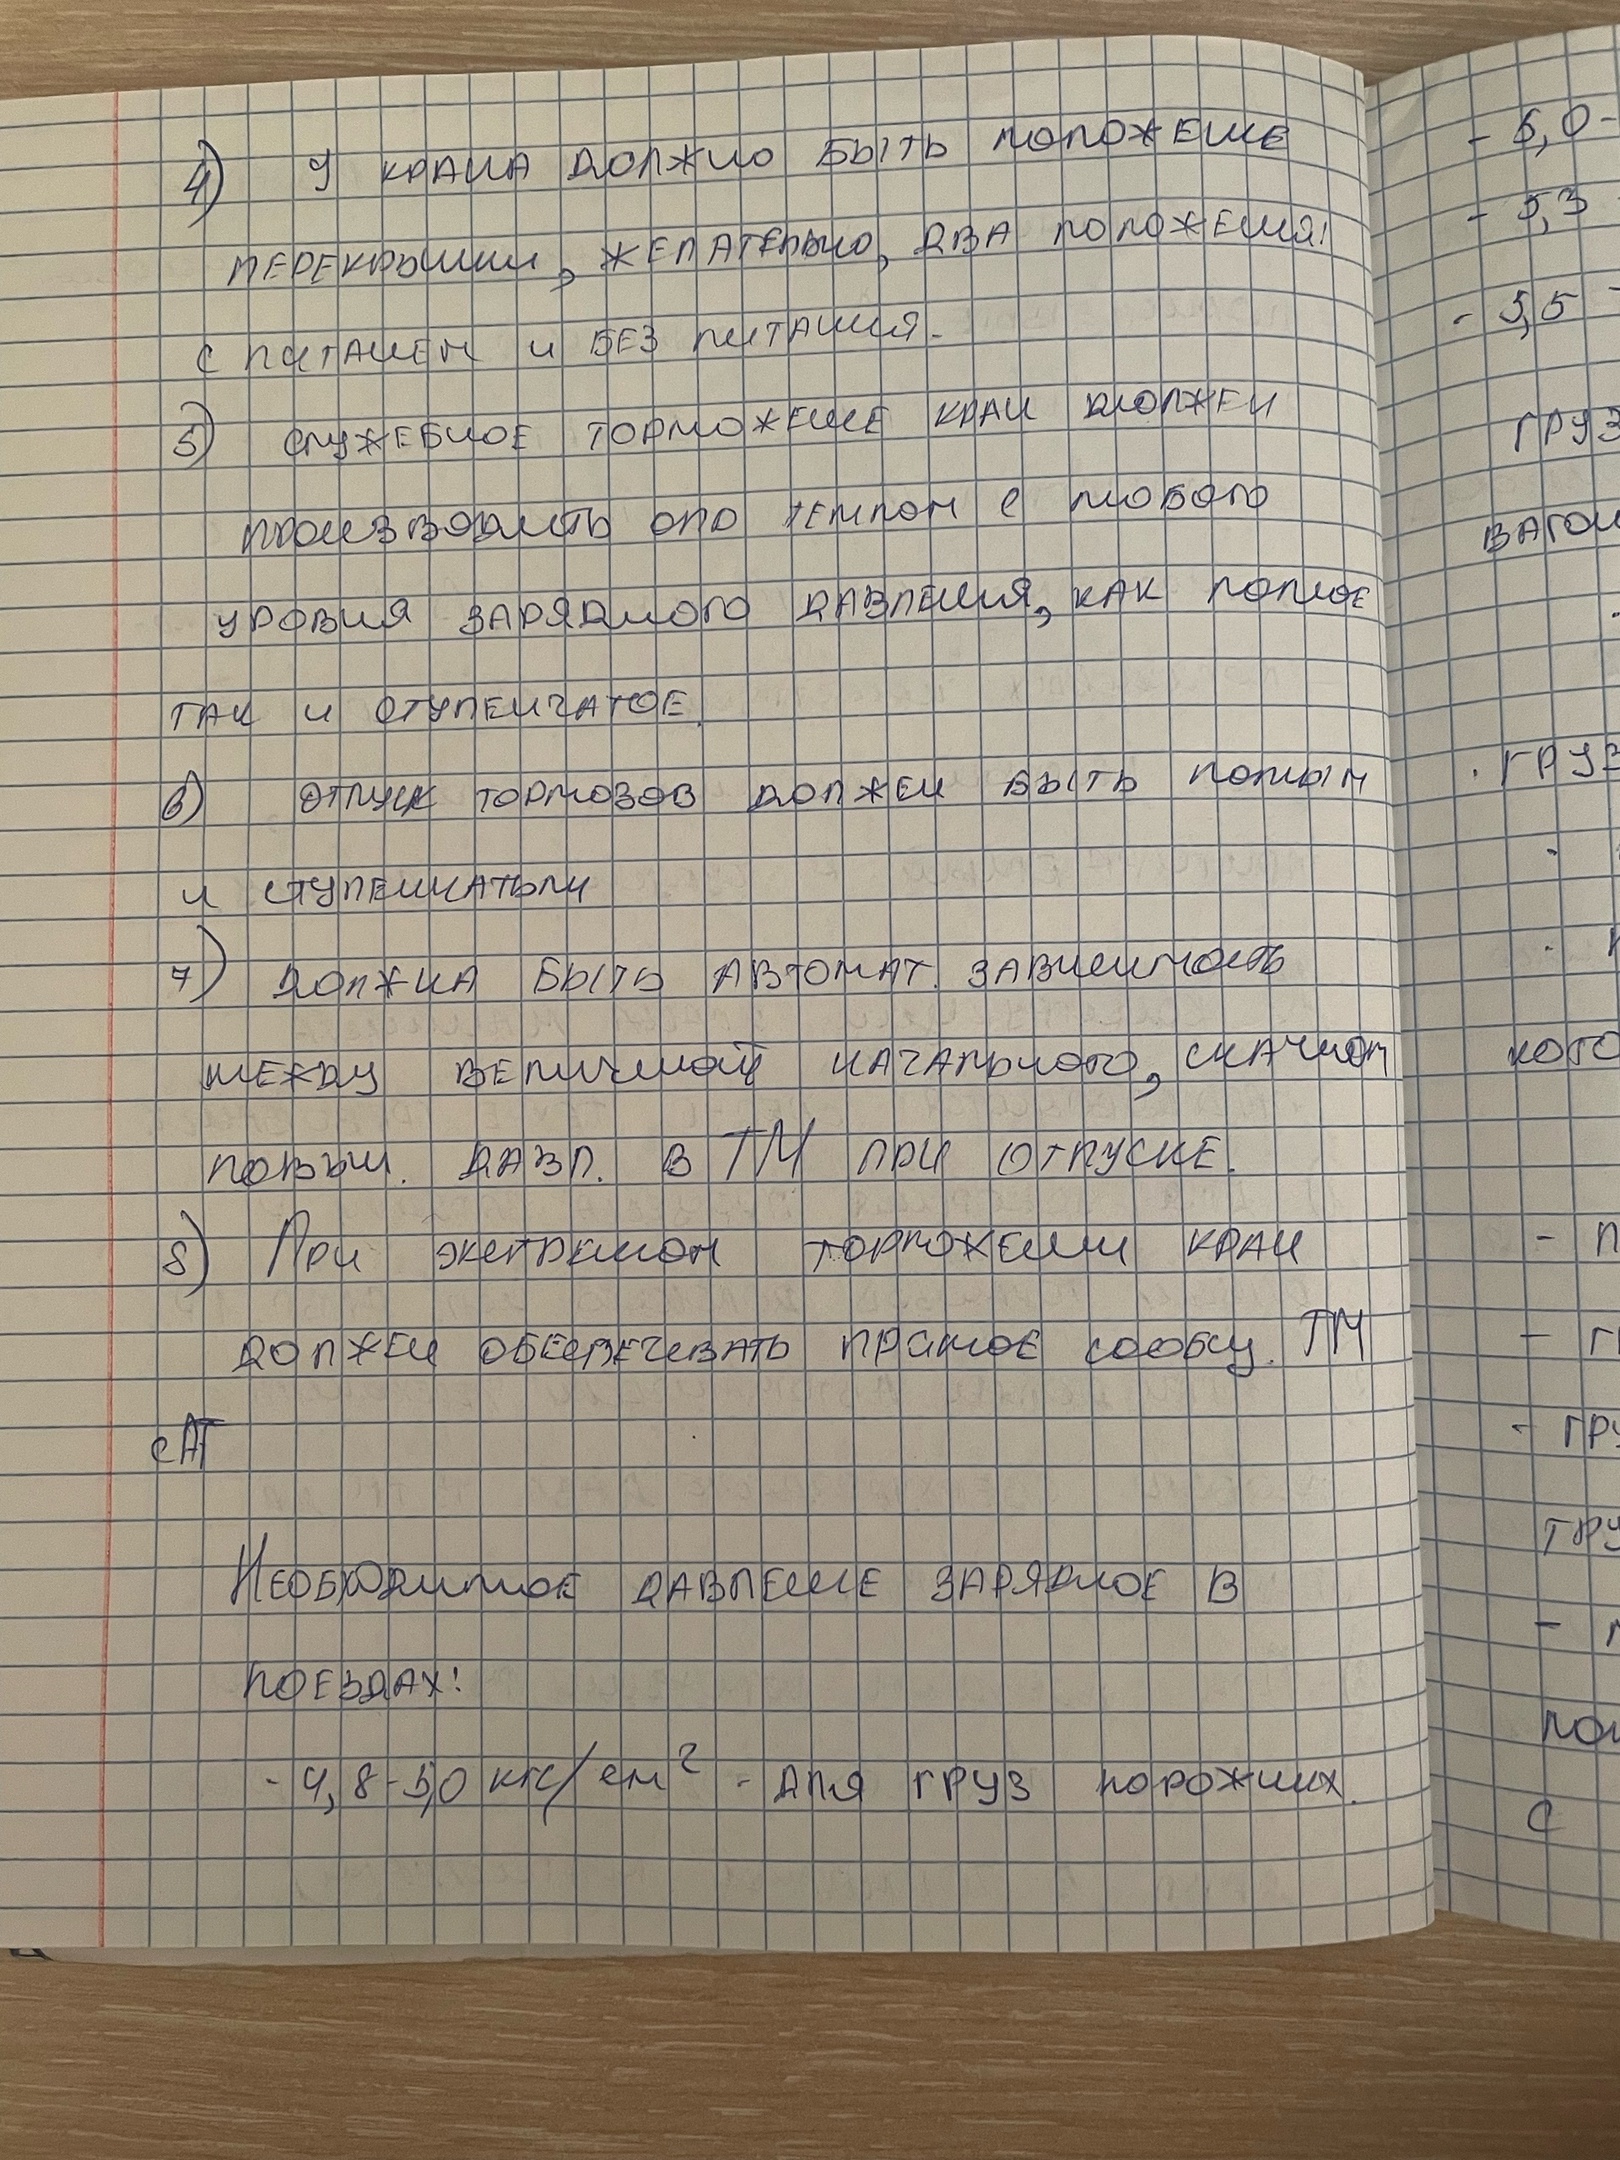 4) У крана должно быть положение
перекрыши, желательно, два положения:
с питанием и без питания.
5) служебное торможение кран должен
производить опр темпом с любого
уровня зарядного давления, как полное
так и ступенчатое.
6) отпуск тормозов должен быть полным
и ступенчатым
7) должна быть автомат. зависимость
между величиной начального, скачком
повыш. давл. в ТМ при отпуске.
8) При экстренном торможении кран
должен обеспечивать прямое сообщ. ТМ
с АТ
Необходимое давление зарядное в
поездах:
- 4,8-5,0 кгс/см² - для груз порожних.
- 5,0-
- 5,3
- 5,5 -
груз
вагон
. груз
кого
- П
- гр
- гру
гру
С